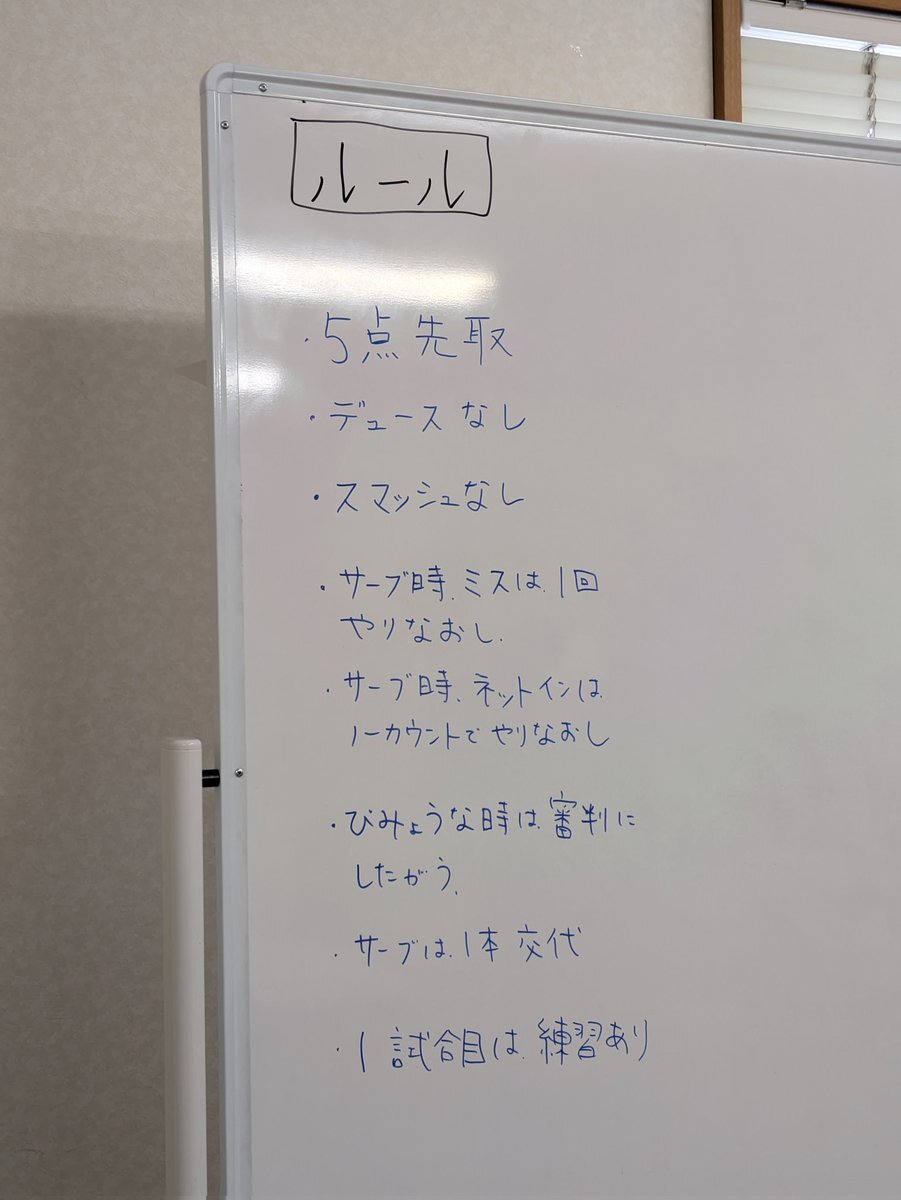 ルール
・5点先取
・デュースなし
・スマッシュなし
・サーブ時、ミスは、1回
やりなおし、
・サーブ時、ネットインは
ノーカウントでやりなおし
・びみょうな時は審判に
したがう、
・サーブは、1本交代
・1試合目は、練習あり